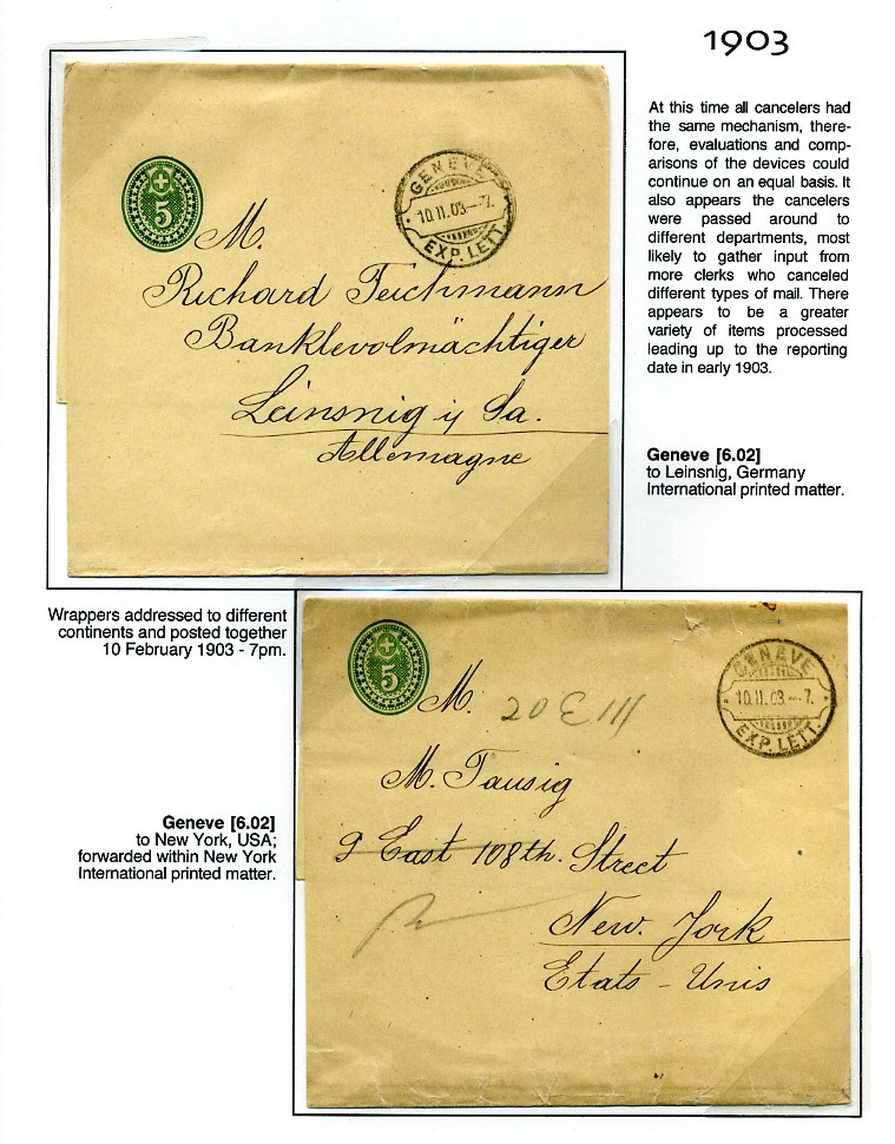 1903
At this time all cancelers had
the same mechanism, there-
fore, evaluations and comp-
arisons of the devices could
continue on an equal basis. It
also appears the cancelers
were passed around to
different departments, most
likely to gather input from
more clerks who canceled
different types of mail. There
appears to be a greater
variety of items processed
leading up to the reporting
date in early 1903.
5
GENEVE
10.II.03—7.
EXP. LETT.
M.
Richard Teichmann
Banklevolmächtiger
Leinsnig i/ Sa.
Allemagne
Geneve [6.02]
to Leinsnig, Germany
International printed matter.
Wrappers addressed to different
continents and posted together
10 February 1903 - 7pm.
5
GENÈVE
10.II.03—7.
EXP. LETT.
M. 20 E 111
M. Tausig
9 East 108th. Street
New. York
Etats - Unis
Geneve [6.02]
to New York, USA;
forwarded within New York
International printed matter.